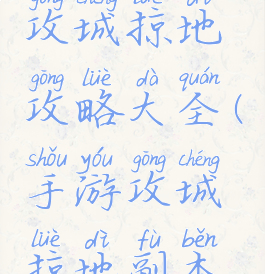 gōng chéng lüè dì
攻城掠地
gōng lüè dà quán
攻略大全(
shǒu yóu gōng chéng
手游攻城
lüè dì fù běn
掠地副本